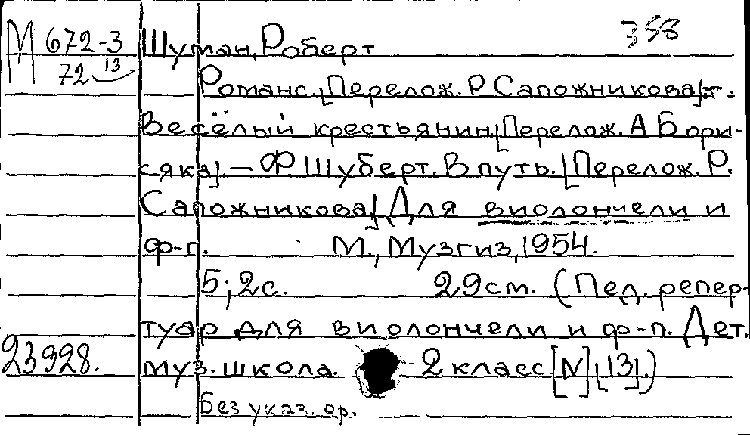 М 672-3 Шуман, Роберт 358
72 13
Романс. [Перелож. Р Сапожникова].-
Весёлый крестьянин [Перелож. А Бори-
сяка]. - Ф Шуберт. В путь. [Перелож. Р.
Сапожникова] Для виолончели и
ф-п. М., Музгиз, 1954.
5; 2с. 29см. (Пед. репер-
туар для виолончели и ф-п. Дет.
23928. муз. школа. 2 класс [N] [13].)
Без указ. ор.